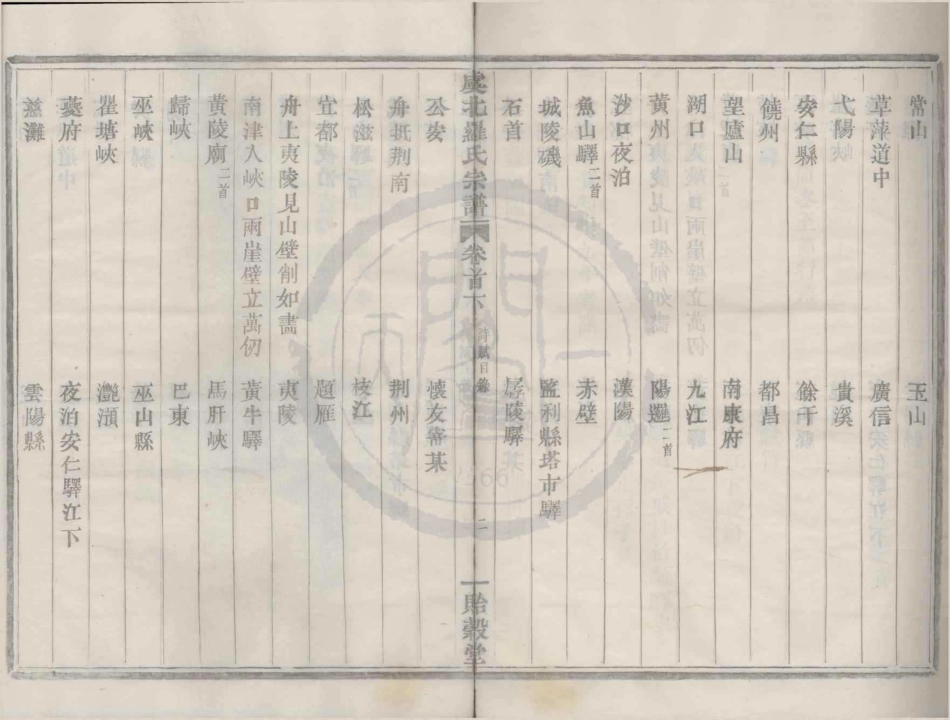 常山　玉山
草萍道中　廣信
弋陽峽　貴溪
安仁縣　餘干
饒州　都昌
望廬山　南康府
湖口　九江
黃州　陽邏二首
沙口夜泊　漢陽
魚山驛二首　赤壁
城陵磯　監利縣塔市驛
石首　孱陵驛
虞北羅氏宗譜　卷首下　詩賦目錄　二　貽穀堂
公安　懷友蕃某
舟抵荆南　荆州
松滋　枝江
宜都　題雁
舟上夷陵見山壁削如畵　夷陵
南津入峽口兩崖壁立萬仞　黃牛驛
黃陵廟二首　馬肝峽
歸峽　巴東
巫峽　巫山縣
瞿塘峽　灔澦
夔府　夜泊安仁驛江下
慈灘　雲陽縣